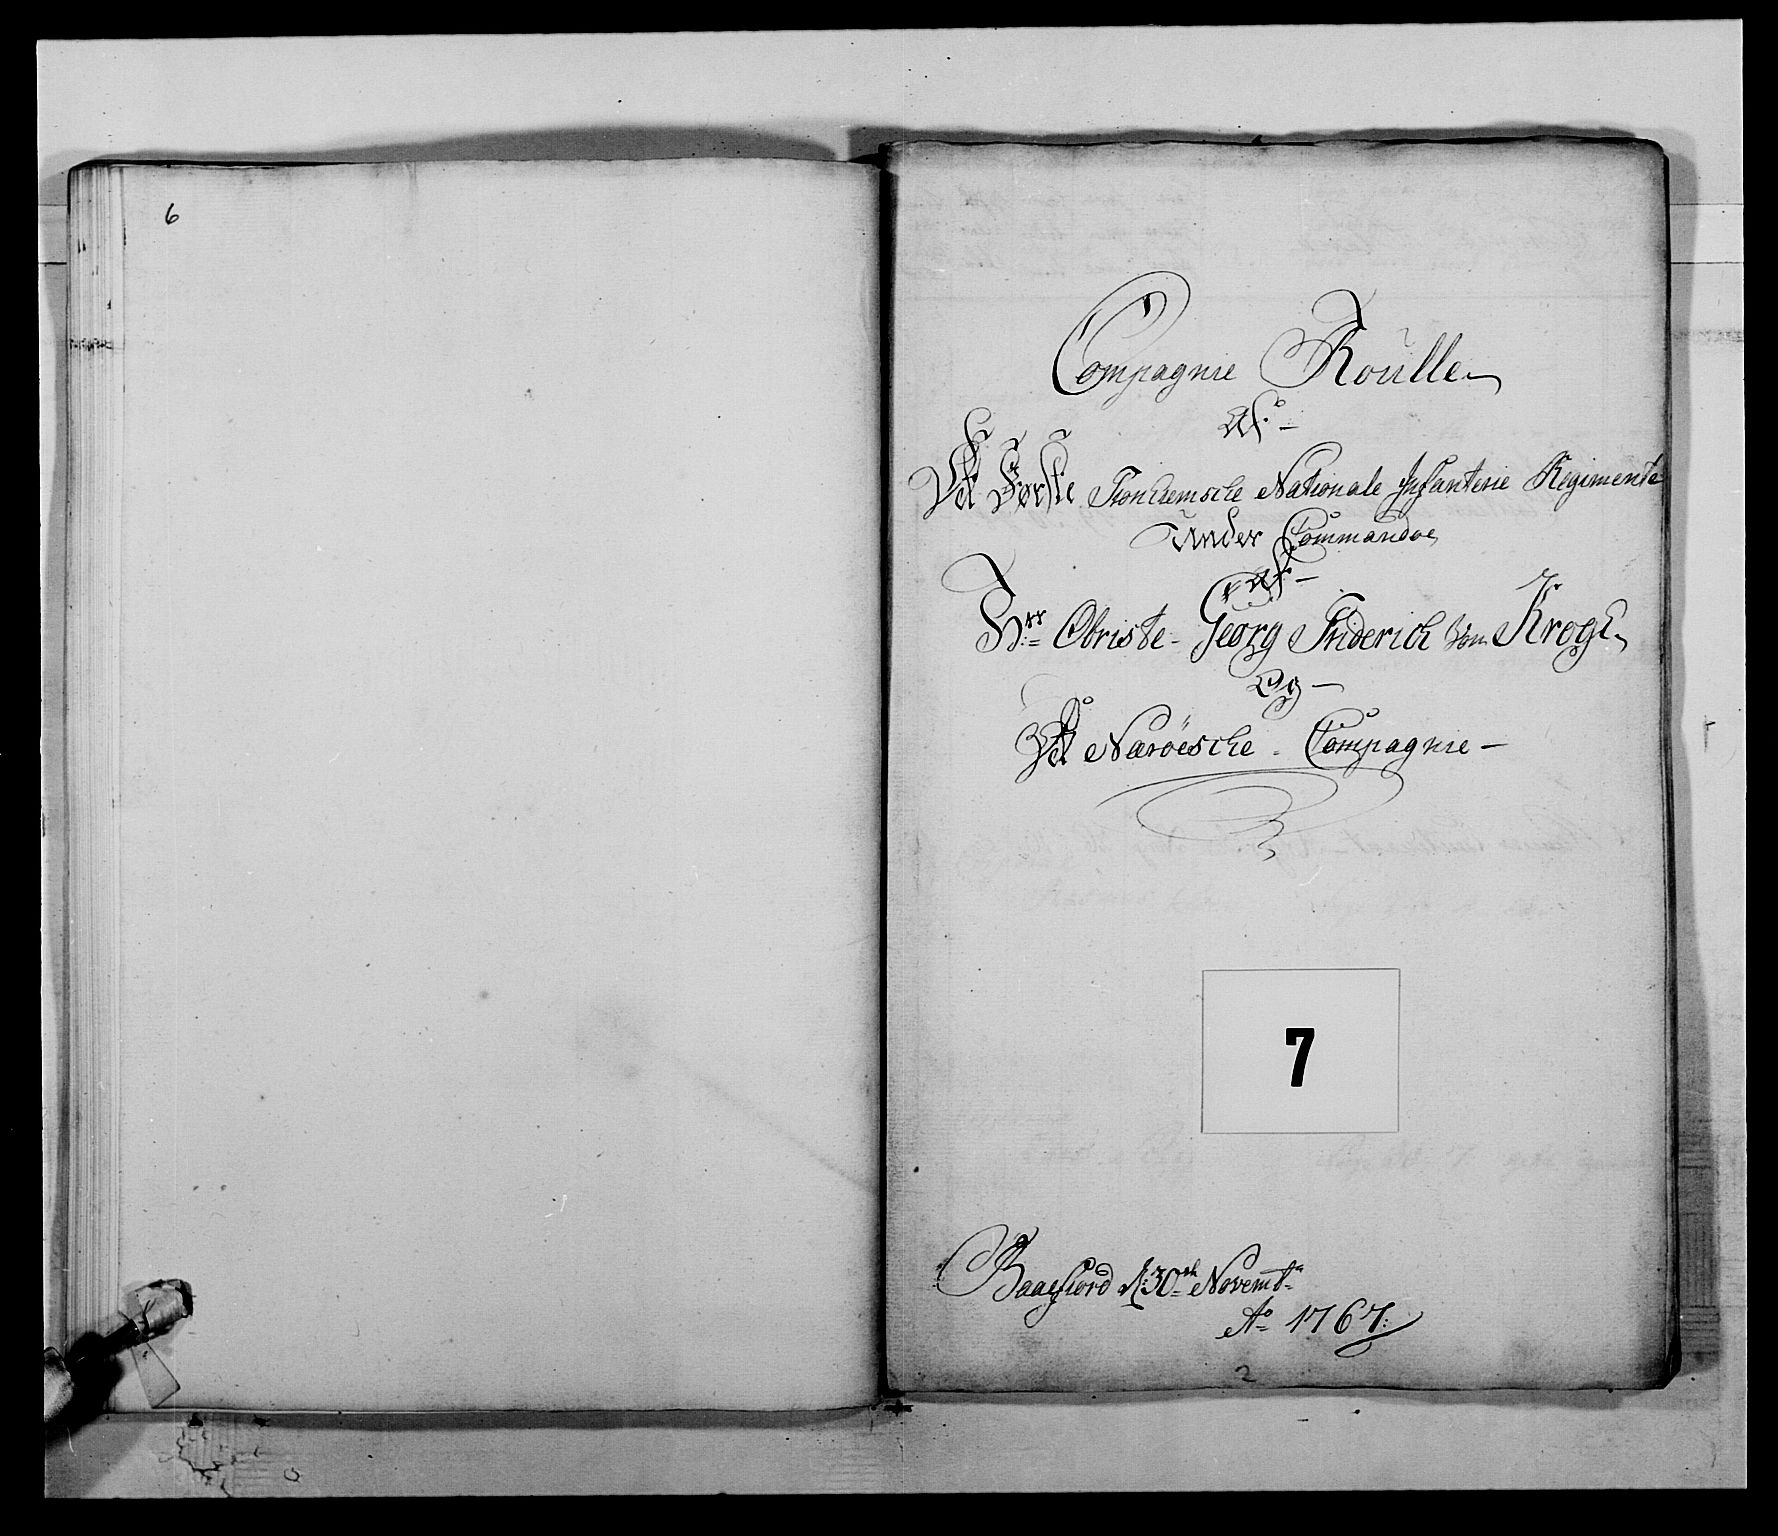 6
Compagnie Roülle
Af
Det Første Tronhiemsche Nationale Infanterie Regimente
Ünder Commandoe
af
Hrr: Obriste Georg Friderich von Krogh
Og
Det Næröesche Compagnie
7
d: 30te Novembr
Ao 1767:
2